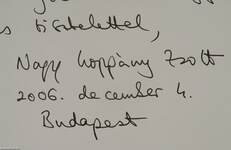 s tisztelettel,
Nagy Koppány Zsolt
2006. december 4.
Budapest